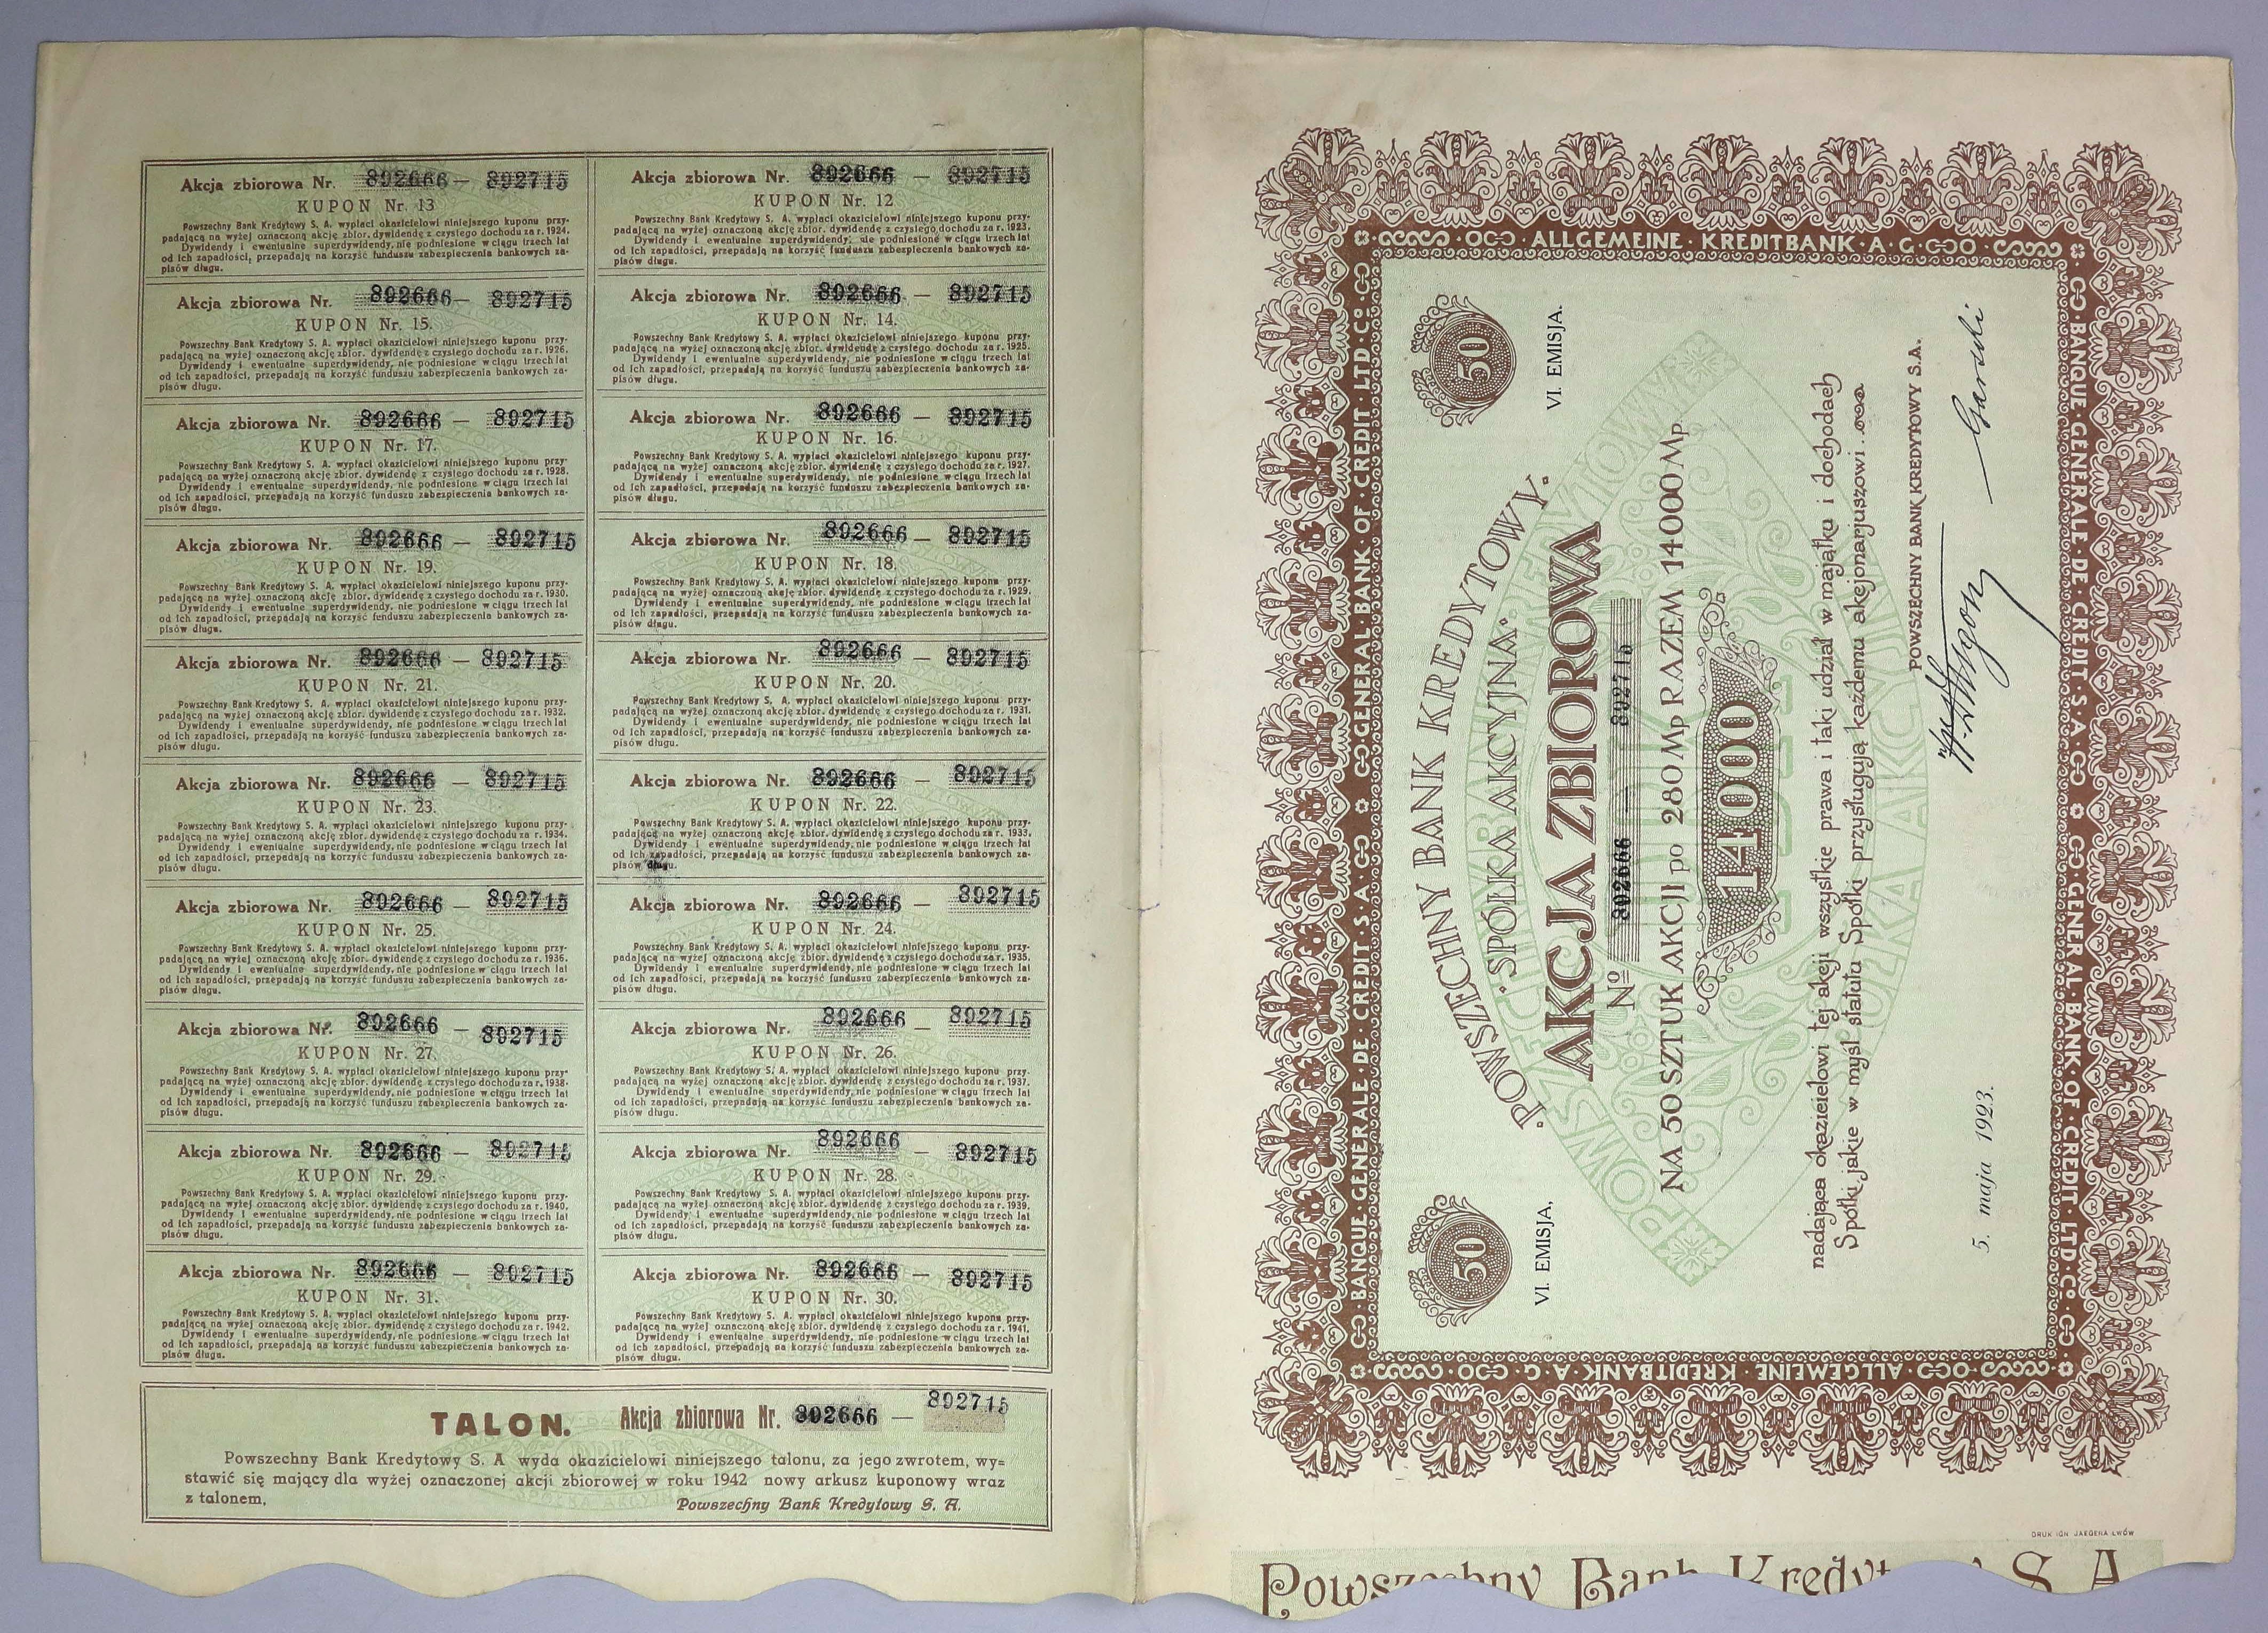 Akcja zbiorowa Nr. 892666 — 892715
KUPON Nr. 13
Powszechny Bank Kredytowy S. A. wypłaci okazicielowi niniejszego kuponu przy-
padającą na wyżej oznaczoną akcję zbior. dywidendę z czystego dochodu za r. 1924.
Dywidendy i ewentualne superdywidendy, nie podniesione w ciągu trzech lat
od ich zapadłości, przepadają na korzyść funduszu zabezpieczenia bankowych za-
pisów długu.
Akcja zbiorowa Nr. 892666 — 892715
KUPON Nr. 12
Powszechny Bank Kredytowy S. A. wypłaci okazicielowi niniejszego kuponu przy-
padającą na wyżej oznaczoną akcję zbior. dywidendę z czystego dochodu za r. 1923.
Dywidendy i ewentualne superdywidendy, nie podniesione w ciągu trzech lat
od ich zapadłości, przepadają na korzyść funduszu zabezpieczenia bankowych za-
pisów długu.
Akcja zbiorowa Nr. 892666 — 892715
KUPON Nr. 15.
Powszechny Bank Kredytowy S. A. wypłaci okazicielowi niniejszego kuponu przy-
padającą na wyżej oznaczoną akcję zbior. dywidendę z czystego dochodu za r. 1926.
Dywidendy i ewentualne superdywidendy, nie podniesione w ciągu trzech lat
od ich zapadłości, przepadają na korzyść funduszu zabezpieczenia bankowych za-
pisów długu.
Akcja zbiorowa Nr. 892666 — 892715
KUPON Nr. 14.
Powszechny Bank Kredytowy S. A. wypłaci okazicielowi niniejszego kuponu przy-
padającą na wyżej oznaczoną akcję zbior. dywidendę z czystego dochodu za r. 1925.
Dywidendy i ewentualne superdywidendy, nie podniesione w ciągu trzech lat
od ich zapadłości, przepadają na korzyść funduszu zabezpieczenia bankowych za-
pisów długu.
Akcja zbiorowa Nr. 892666 — 892715
KUPON Nr. 17.
Powszechny Bank Kredytowy S. A. wypłaci okazicielowi niniejszego kuponu przy-
padającą na wyżej oznaczoną akcję zbior. dywidendę z czystego dochodu za r. 1928.
Dywidendy i ewentualne superdywidendy, nie podniesione w ciągu trzech lat
od ich zapadłości, przepadają na korzyść funduszu zabezpieczenia bankowych za-
pisów długu.
Akcja zbiorowa Nr. 892666 — 892715
KUPON Nr. 16.
Powszechny Bank Kredytowy S. A. wypłaci okazicielowi niniejszego kuponu przy-
padającą na wyżej oznaczoną akcję zbior. dywidendę z czystego dochodu za r. 1927.
Dywidendy i ewentualne superdywidendy, nie podniesione w ciągu trzech lat
od ich zapadłości, przepadają na korzyść funduszu zabezpieczenia bankowych za-
pisów długu.
Akcja zbiorowa Nr. 892666 — 892715
KUPON Nr. 19.
Powszechny Bank Kredytowy S. A. wypłaci okazicielowi niniejszego kuponu przy-
padającą na wyżej oznaczoną akcję zbior. dywidendę z czystego dochodu za r. 1930.
Dywidendy i ewentualne superdywidendy, nie podniesione w ciągu trzech lat
od ich zapadłości, przepadają na korzyść funduszu zabezpieczenia bankowych za-
pisów długu.
Akcja zbiorowa Nr. 892666 — 892715
KUPON Nr. 18.
Powszechny Bank Kredytowy S. A. wypłaci okazicielowi niniejszego kuponu przy-
padającą na wyżej oznaczoną akcję zbior. dywidendę z czystego dochodu za r. 1929.
Dywidendy i ewentualne superdywidendy, nie podniesione w ciągu trzech lat
od ich zapadłości, przepadają na korzyść funduszu zabezpieczenia bankowych za-
pisów długu.
Akcja zbiorowa Nr. 892666 — 892715
KUPON Nr. 21.
Powszechny Bank Kredytowy S. A. wypłaci okazicielowi niniejszego kuponu przy-
padającą na wyżej oznaczoną akcję zbior. dywidendę z czystego dochodu za r. 1932.
Dywidendy i ewentualne superdywidendy, nie podniesione w ciągu trzech lat
od ich zapadłości, przepadają na korzyść funduszu zabezpieczenia bankowych za-
pisów długu.
Akcja zbiorowa Nr. 892666 — 892715
KUPON Nr. 20.
Powszechny Bank Kredytowy S. A. wypłaci okazicielowi niniejszego kuponu przy-
padającą na wyżej oznaczoną akcję zbior. dywidendę z czystego dochodu za r. 1931.
Dywidendy i ewentualne superdywidendy, nie podniesione w ciągu trzech lat
od ich zapadłości, przepadają na korzyść funduszu zabezpieczenia bankowych za-
pisów długu.
Akcja zbiorowa Nr. 892666 — 892715
KUPON Nr. 23.
Powszechny Bank Kredytowy S. A. wypłaci okazicielowi niniejszego kuponu przy-
padającą na wyżej oznaczoną akcję zbior. dywidendę z czystego dochodu za r. 1934.
Dywidendy i ewentualne superdywidendy, nie podniesione w ciągu trzech lat
od ich zapadłości, przepadają na korzyść funduszu zabezpieczenia bankowych za-
pisów długu.
Akcja zbiorowa Nr. 892666 — 892715
KUPON Nr. 22.
Powszechny Bank Kredytowy S. A. wypłaci okazicielowi niniejszego kuponu przy-
padającą na wyżej oznaczoną akcję zbior. dywidendę z czystego dochodu za r. 1933.
Dywidendy i ewentualne superdywidendy, nie podniesione w ciągu trzech lat
od ich zapadłości, przepadają na korzyść funduszu zabezpieczenia bankowych za-
pisów długu.
Akcja zbiorowa Nr. 892666 — 892715
KUPON Nr. 25.
Powszechny Bank Kredytowy S. A. wypłaci okazicielowi niniejszego kuponu przy-
padającą na wyżej oznaczoną akcję zbior. dywidendę z czystego dochodu za r. 1936.
Dywidendy i ewentualne superdywidendy, nie podniesione w ciągu trzech lat
od ich zapadłości, przepadają na korzyść funduszu zabezpieczenia bankowych za-
pisów długu.
Akcja zbiorowa Nr. 892666 — 892715
KUPON Nr. 24.
Powszechny Bank Kredytowy S. A. wypłaci okazicielowi niniejszego kuponu przy-
padającą na wyżej oznaczoną akcję zbior. dywidendę z czystego dochodu za r. 1935.
Dywidendy i ewentualne superdywidendy, nie podniesione w ciągu trzech lat
od ich zapadłości, przepadają na korzyść funduszu zabezpieczenia bankowych za-
pisów długu.
Akcja zbiorowa Nr. 892666 — 892715
KUPON Nr. 27.
Powszechny Bank Kredytowy S. A. wypłaci okazicielowi niniejszego kuponu przy-
padającą na wyżej oznaczoną akcję zbior. dywidendę z czystego dochodu za r. 1938.
Dywidendy i ewentualne superdywidendy, nie podniesione w ciągu trzech lat
od ich zapadłości, przepadają na korzyść funduszu zabezpieczenia bankowych za-
pisów długu.
Akcja zbiorowa Nr. 892666 — 892715
KUPON Nr. 26.
Powszechny Bank Kredytowy S. A. wypłaci okazicielowi niniejszego kuponu przy-
padającą na wyżej oznaczoną akcję zbior. dywidendę z czystego dochodu za r. 1937.
Dywidendy i ewentualne superdywidendy, nie podniesione w ciągu trzech lat
od ich zapadłości, przepadają na korzyść funduszu zabezpieczenia bankowych za-
pisów długu.
Akcja zbiorowa Nr. 892666 — 892715
KUPON Nr. 29.
Powszechny Bank Kredytowy S. A. wypłaci okazicielowi niniejszego kuponu przy-
padającą na wyżej oznaczoną akcję zbior. dywidendę z czystego dochodu za r. 1940.
Dywidendy i ewentualne superdywidendy, nie podniesione w ciągu trzech lat
od ich zapadłości, przepadają na korzyść funduszu zabezpieczenia bankowych za-
pisów długu.
Akcja zbiorowa Nr. 892666 — 892715
KUPON Nr. 28.
Powszechny Bank Kredytowy S. A. wypłaci okazicielowi niniejszego kuponu przy-
padającą na wyżej oznaczoną akcję zbior. dywidendę z czystego dochodu za r. 1939.
Dywidendy i ewentualne superdywidendy, nie podniesione w ciągu trzech lat
od ich zapadłości, przepadają na korzyść funduszu zabezpieczenia bankowych za-
pisów długu.
Akcja zbiorowa Nr. 892666 — 892715
KUPON Nr. 31.
Powszechny Bank Kredytowy S. A. wypłaci okazicielowi niniejszego kuponu przy-
padającą na wyżej oznaczoną akcję zbior. dywidendę z czystego dochodu za r. 1942.
Dywidendy i ewentualne superdywidendy, nie podniesione w ciągu trzech lat
od ich zapadłości, przepadają na korzyść funduszu zabezpieczenia bankowych za-
pisów długu.
Akcja zbiorowa Nr. 892666 — 892715
KUPON Nr. 30.
Powszechny Bank Kredytowy S. A. wypłaci okazicielowi niniejszego kuponu przy-
padającą na wyżej oznaczoną akcję zbior. dywidendę z czystego dochodu za r. 1941.
Dywidendy i ewentualne superdywidendy, nie podniesione w ciągu trzech lat
od ich zapadłości, przepadają na korzyść funduszu zabezpieczenia bankowych za-
pisów długu.
TALON. Akcja zbiorowa Nr. 892666 — 892715
Powszechny Bank Kredytowy S. A wyda okazicielowi niniejszego talonu, za jego zwrotem, wy=
stawić się mający dla wyżej oznaczonej akcji zbiorowej w roku 1942 nowy arkusz kuponowy wraz
z talonem.
Powszechny Bank Kredytowy S. A.
BANQUE·GENERALE·DE·CREDIT·S·A·GENERAL·BANK·OF·CREDIT·LTD·Co·
ALLGEMEINE·KREDITBANK·A·G·
BANQUE·GENERALE·DE·CREDIT·S·A·GENERAL·BANK·OF·CREDIT·LTD·Co·
ALLGEMEINE KREDITBANK·A·G·
50
50
VI. EMISJA.
VI. EMISJA.
·POWSZECHNY BANK KREDYTOWY·
·SPÓŁKA AKCYJNA·
AKCJA ZBIOROWA
No 892666 — 892715
NA 50 SZTUK AKCJI po 280 Mp RAZEM 14000 Mp.
14000
nadająca okazicielowi tej akcji wszystkie prawa i taki udział w majątku i dochodach
Spółki, jakie w myśl statutu Spółki przysługują każdemu akcjonarjuszowi
POWSZECHNY BANK KREDYTOWY S.A.
5. maja 1923.
DRUK IGN. JAEGERA LWÓW
Powszechny Bank Kredytowy S. A.